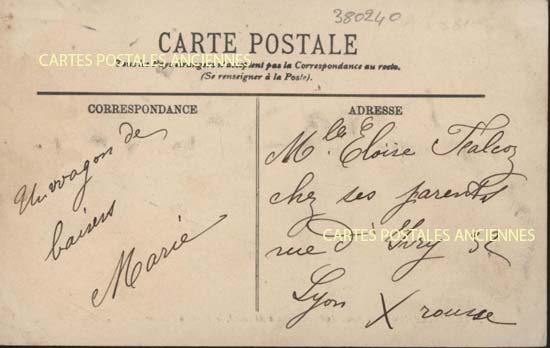 380240
CARTE POSTALE
CARTES POSTALES ANCIENNES
pas la Correspondance au recto.
(Se renseigner à la Poste).
CORRESPONDANCE
Un wagon de
baisers
Marie
ADRESSE
Mlle Eloïse
chez ses parents
rue d'Ivry 32
CARTES POSTALES ANCIENNES
Lyon X rousse